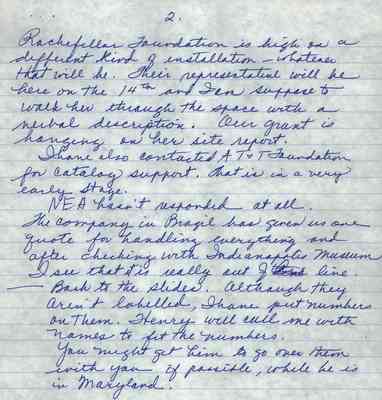 2.
Rochefellar Foundation is high on a
different kind of installation - whatever
that will be. Their representative will be
here on the 14th and I am suppose to
walk her through the space with a
verbal description. Our grant is
hanging on her site report.
I have also contacted A T & T Foundation
for catalog support. That is in a very
early stage.
NEA hasn't responded at all.
The company in Brazil has given us one
quote for handling everything and
after checking with Indianapolis Museum
I see that it is really out of line.
Back to the slides. Although they
aren't labelled, I have put numbers
on them. Henry will call me with
names to fit the numbers.
You might get him to go over them
with you if possible, while he is
in Maryland.